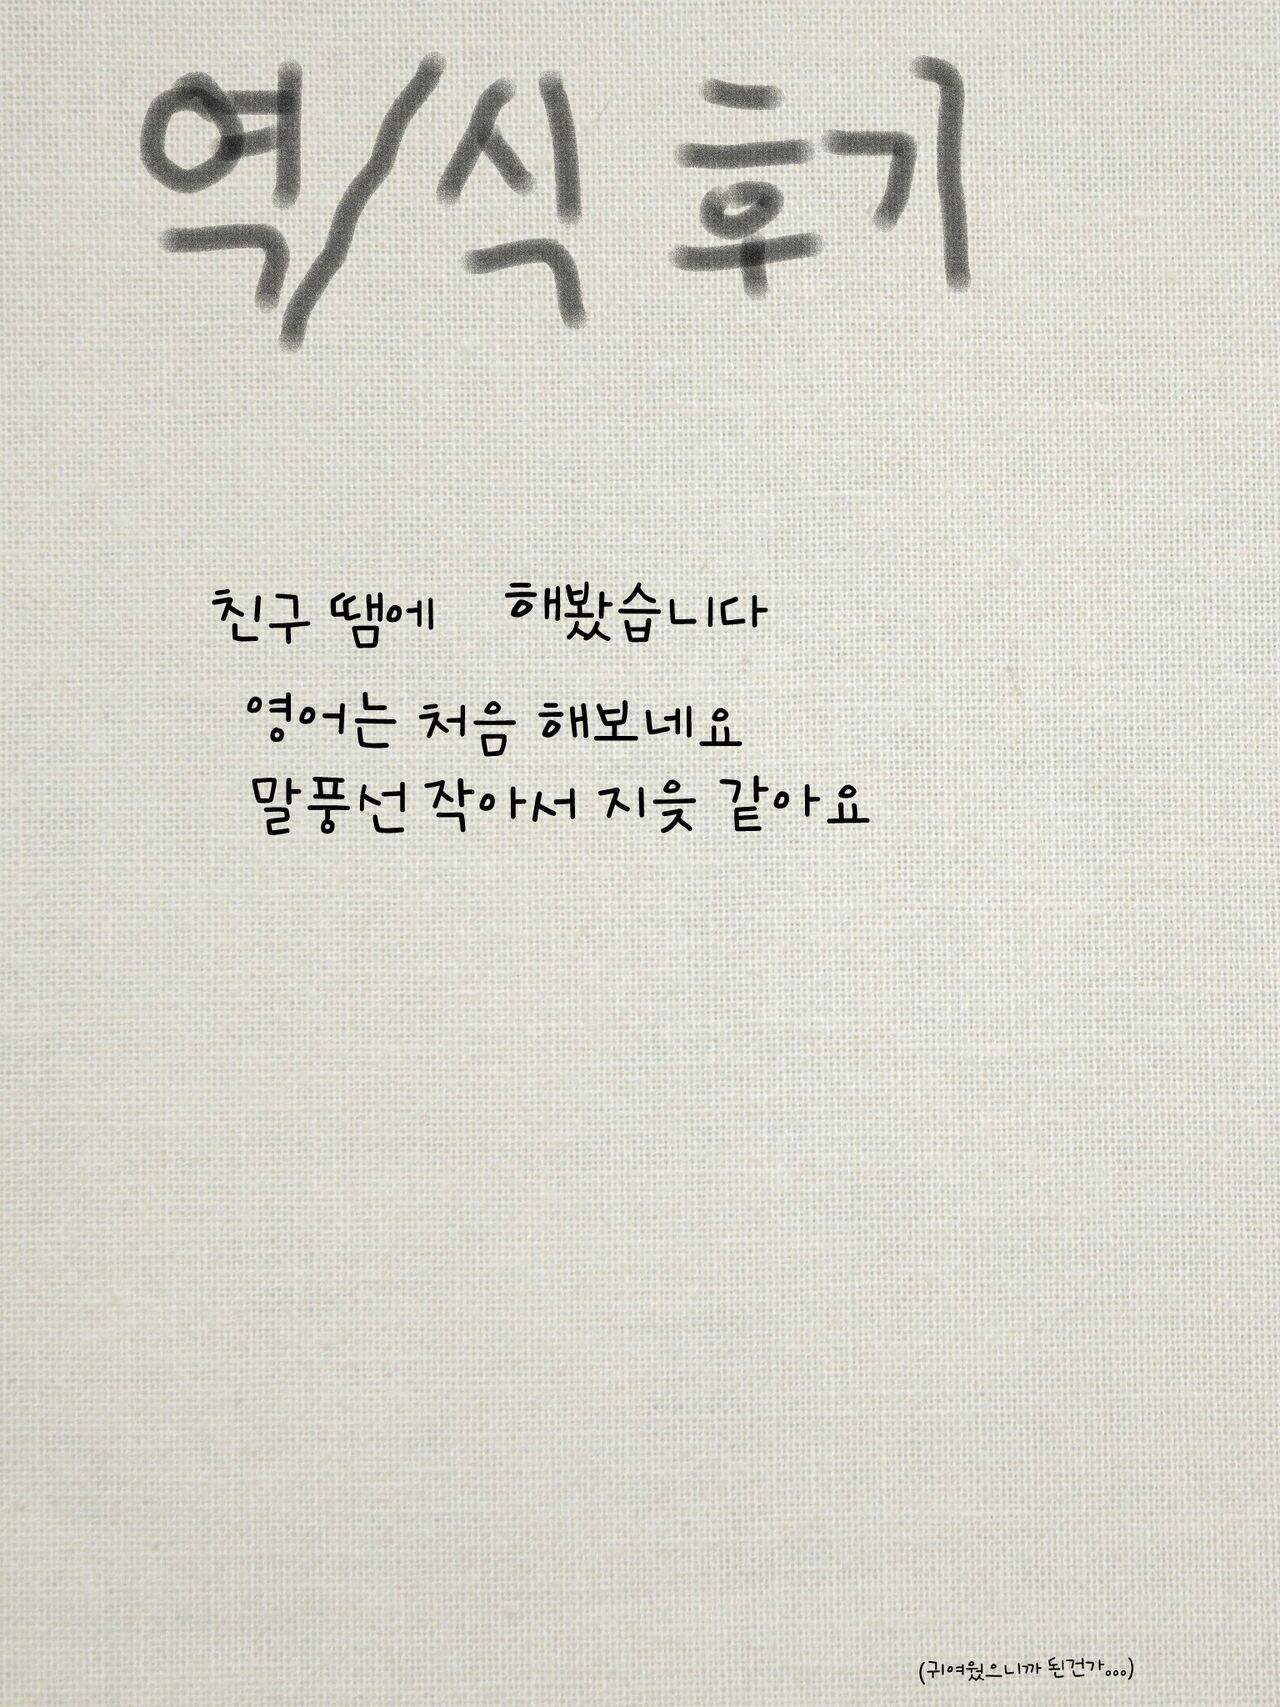 역/식 후기
친구 땜에 해봤습니다
영어는 처음 해보네요
말풍선 작아서 지읒 같아요
(귀여웠으니까 된건가...)